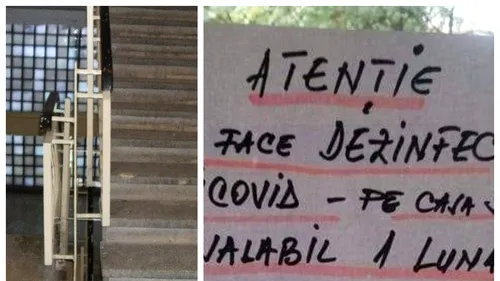 ATENȚIE
FACE DEZINFEC
COVID - PE CASA S
VALABIL 1 LUNA